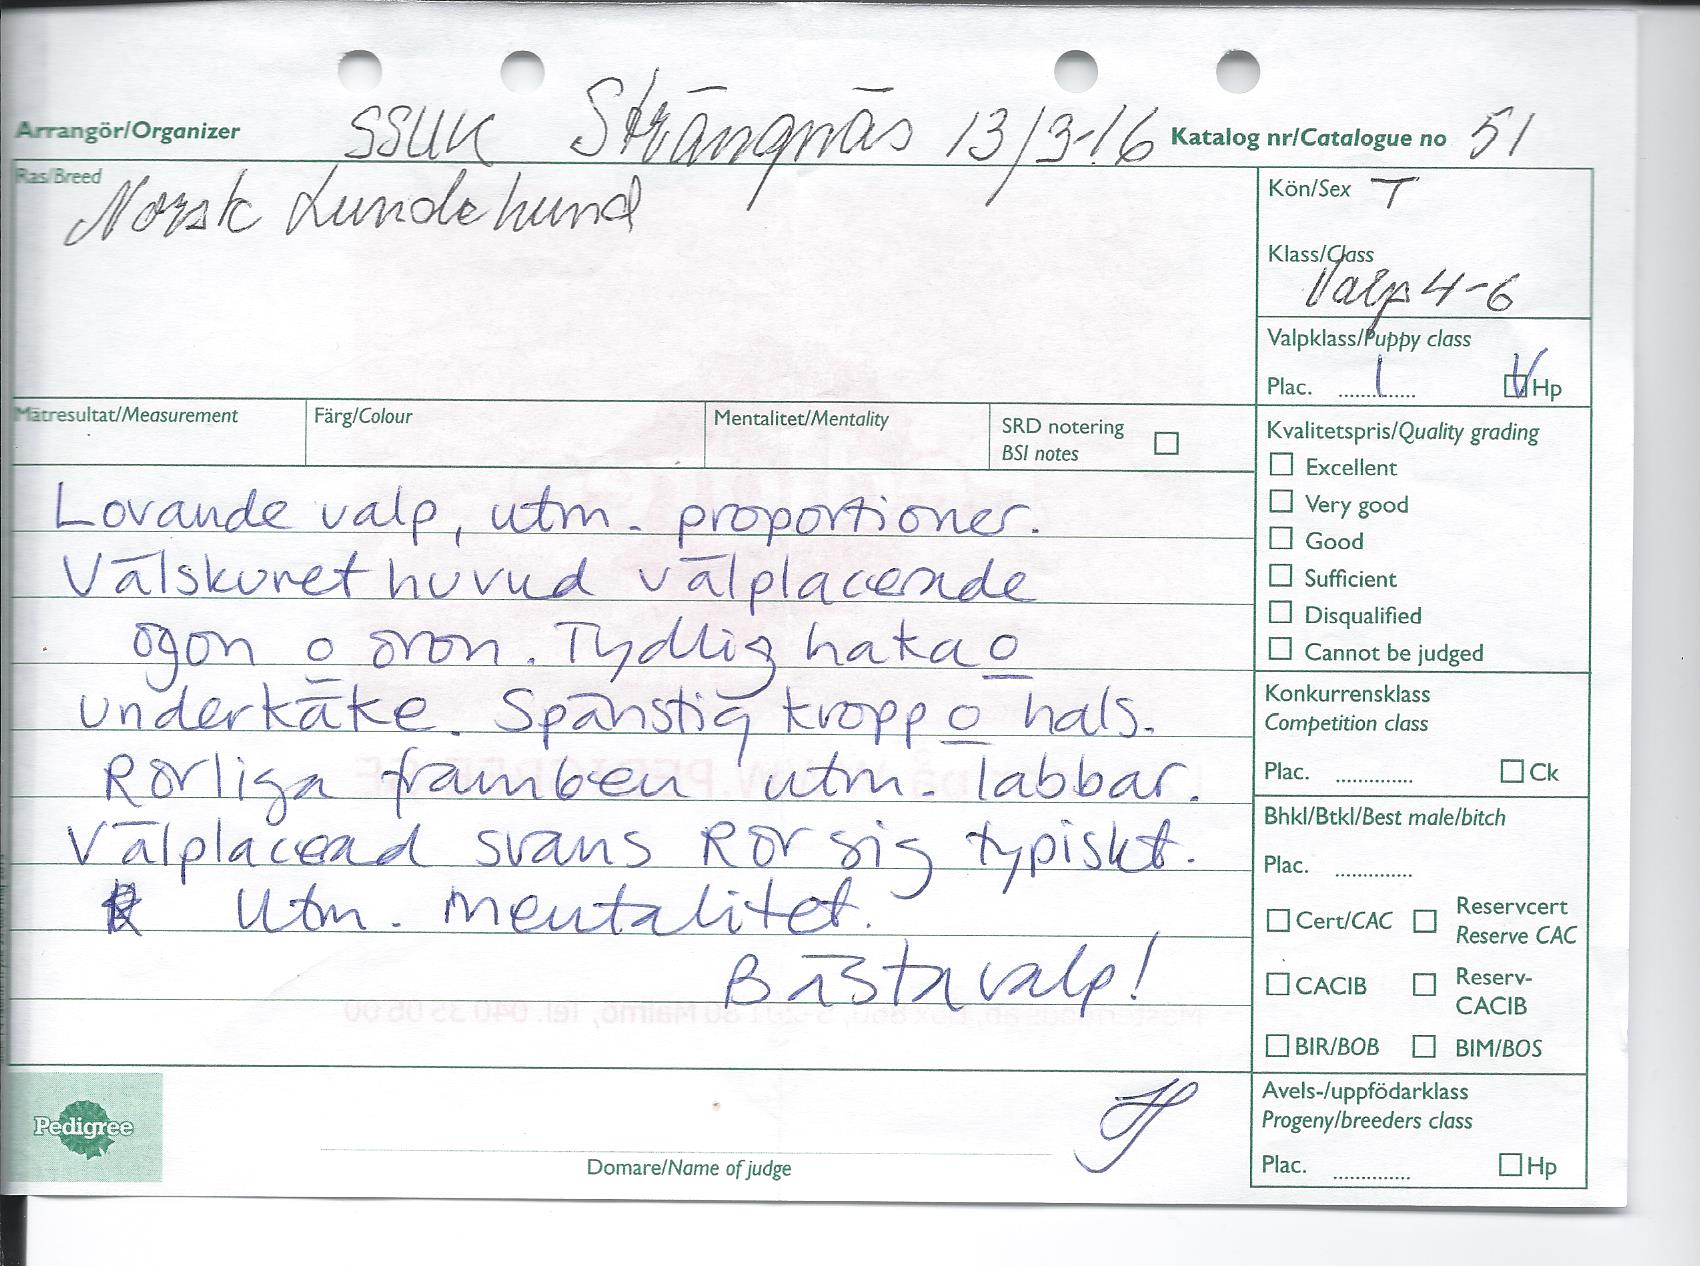 Arrangör/Organizer SSUK Strängnäs 13/3-16 Katalog nr/Catalogue no 51
Ras/Breed Norsk Lundehund
Kön/Sex T
Klass/Class
Valp 4-6
Valpklass/Puppy class
Plac. 1 Hp
Mätresultat/Measurement Färg/Colour Mentalitet/Mentality SRD notering
BSI notes
Kvalitetspris/Quality grading
Excellent
Very good
Good
Sufficient
Disqualified
Cannot be judged
Lovande valp, utm. proportioner.
Välskuret huvud välplacerade
ögon o öron. Tydlig haka o
underkäke. Spänstig kropp o hals.
Rörliga framben utm. labbar.
Välplacerad svans Rör sig typiskt.
Utm. mentalitet.
Bästa valp!
Konkurrensklass
Competition class
Plac. .............. Ck
Bhkl/Btkl/Best male/bitch
Plac. ..............
Cert/CAC Reservcert
Reserve CAC
CACIB Reserv-
CACIB
BIR/BOB BIM/BOS
Avels-/uppfödarklass
Progeny/breeders class
Plac. .............. Hp
Pedigree
Domare/Name of judge